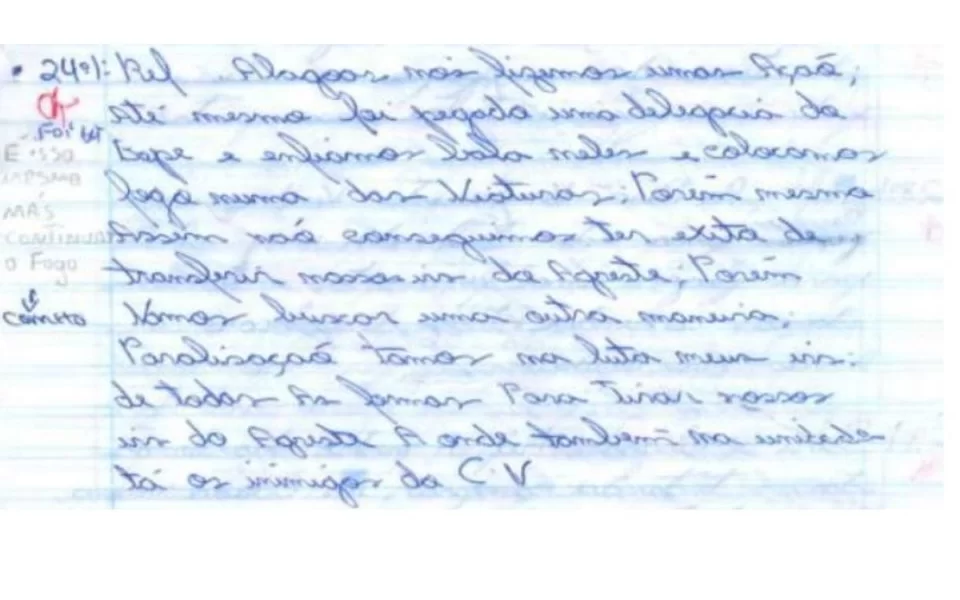 • 24º): Ref Alagoas nós fizemos umas Ação,
até mesmo foi pegado uma delegacia da
Foi
E isso
mesmo
mas
continua
o Fogo
correto
e enfiamos bala neles e colocamos
fogo numa das Viaturas; Porém mesmo
Assim não conseguimos ter exito de
transferir nossos irs do Agreste; Porém
Vamos buscar uma outra maneira,
Paralisação tamos na luta meus irs:
de todas As formas Para Tirar nossos
irs do Agreste A onde também na unidade
tá os inimigos do C V